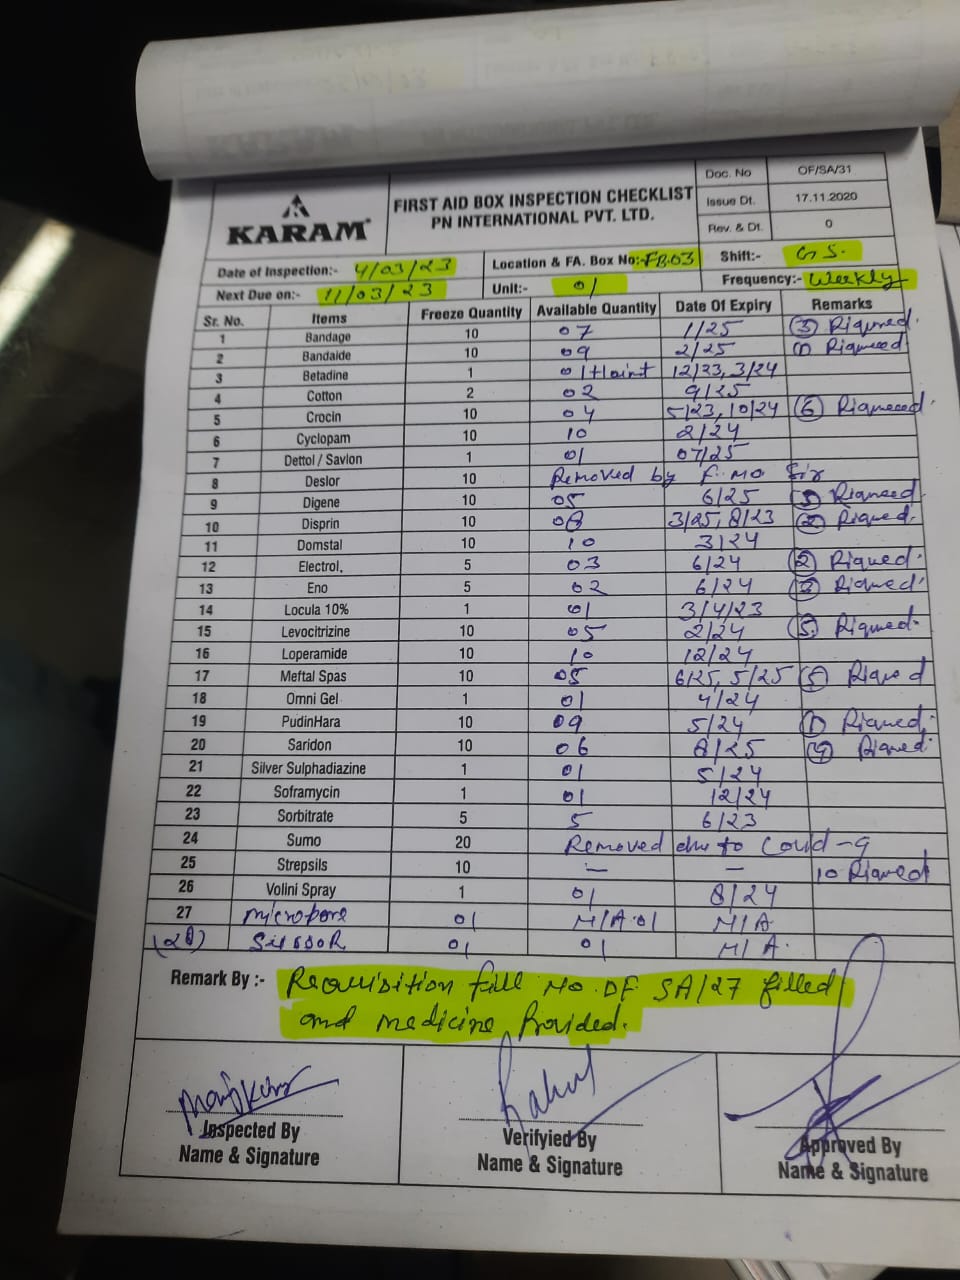 KARAM
FIRST AID BOX INSPECTION CHECKLIST
PN INTERNATIONAL PVT. LTD.
Doc. No OF/SA/31
Issue Dt. 17.11.2020
Rev. & Dt. 0
Date of Inspection:- 4/03/23 Location & FA. Box No:- FB.03 Shift:- G S.
Next Due on:- 11/03/23 Unit:- 01 Frequency:- Weekly
Sr. No. Items Freeze Quantity Available Quantity Date Of Expiry Remarks
1 Bandage 10 07 1/25 (3) Riqured.
2 Bandaide 10 09 2/25 (1) Riqureed
3 Betadine 1 01 12/23, 3/24
4 Cotton 2 02 9/25
5 Crocin 10 04 5/23, 10/24 (6) Riqureed.
6 Cyclopam 10 10 2/24
7 Dettol / Savlon 1 01 07/25
8 Deslor 10 Removed by F.MO Sir
9 Digene 10 05 6/25 (5) Riqureed.
10 Disprin 10 08 3/25, 8/23 (2) Riqured.
11 Domstal 10 10 3/24
12 Electrol. 5 03 6/24 (2) Riqured.
13 Eno 5 02 6/24 (3) Riqured.
14 Locula 10% 1 01 3/4/23
15 Levocitrizine 10 05 2/24 (5) Riqured.
16 Loperamide 10 10 12/24
17 Meftal Spas 10 05 6/25, 5/25 (5) Riqured
18 Omni Gel 1 01 4/24
19 PudinHara 10 09 5/24 (1) Riqured.
20 Saridon 10 06 8/25 (4) Riqured.
21 Silver Sulphadiazine 1 01 5/24
22 Soframycin 1 01 12/24
23 Sorbitrate 5 5 6/23
24 Sumo 20 Removed due to Covid-9
25 Strepsils 10 — — 10 Riqured
26 Volini Spray 1 01 8/24
27 micropore 01 N/A 01 N/A
(28) 01 01 N/A.
Remark By :- Requisition fill No. OF SA/27 filled
and medicine Provided.
Rahul
Inspected By
Name & Signature
Verifyied By
Name & Signature
Approved By
Name & Signature